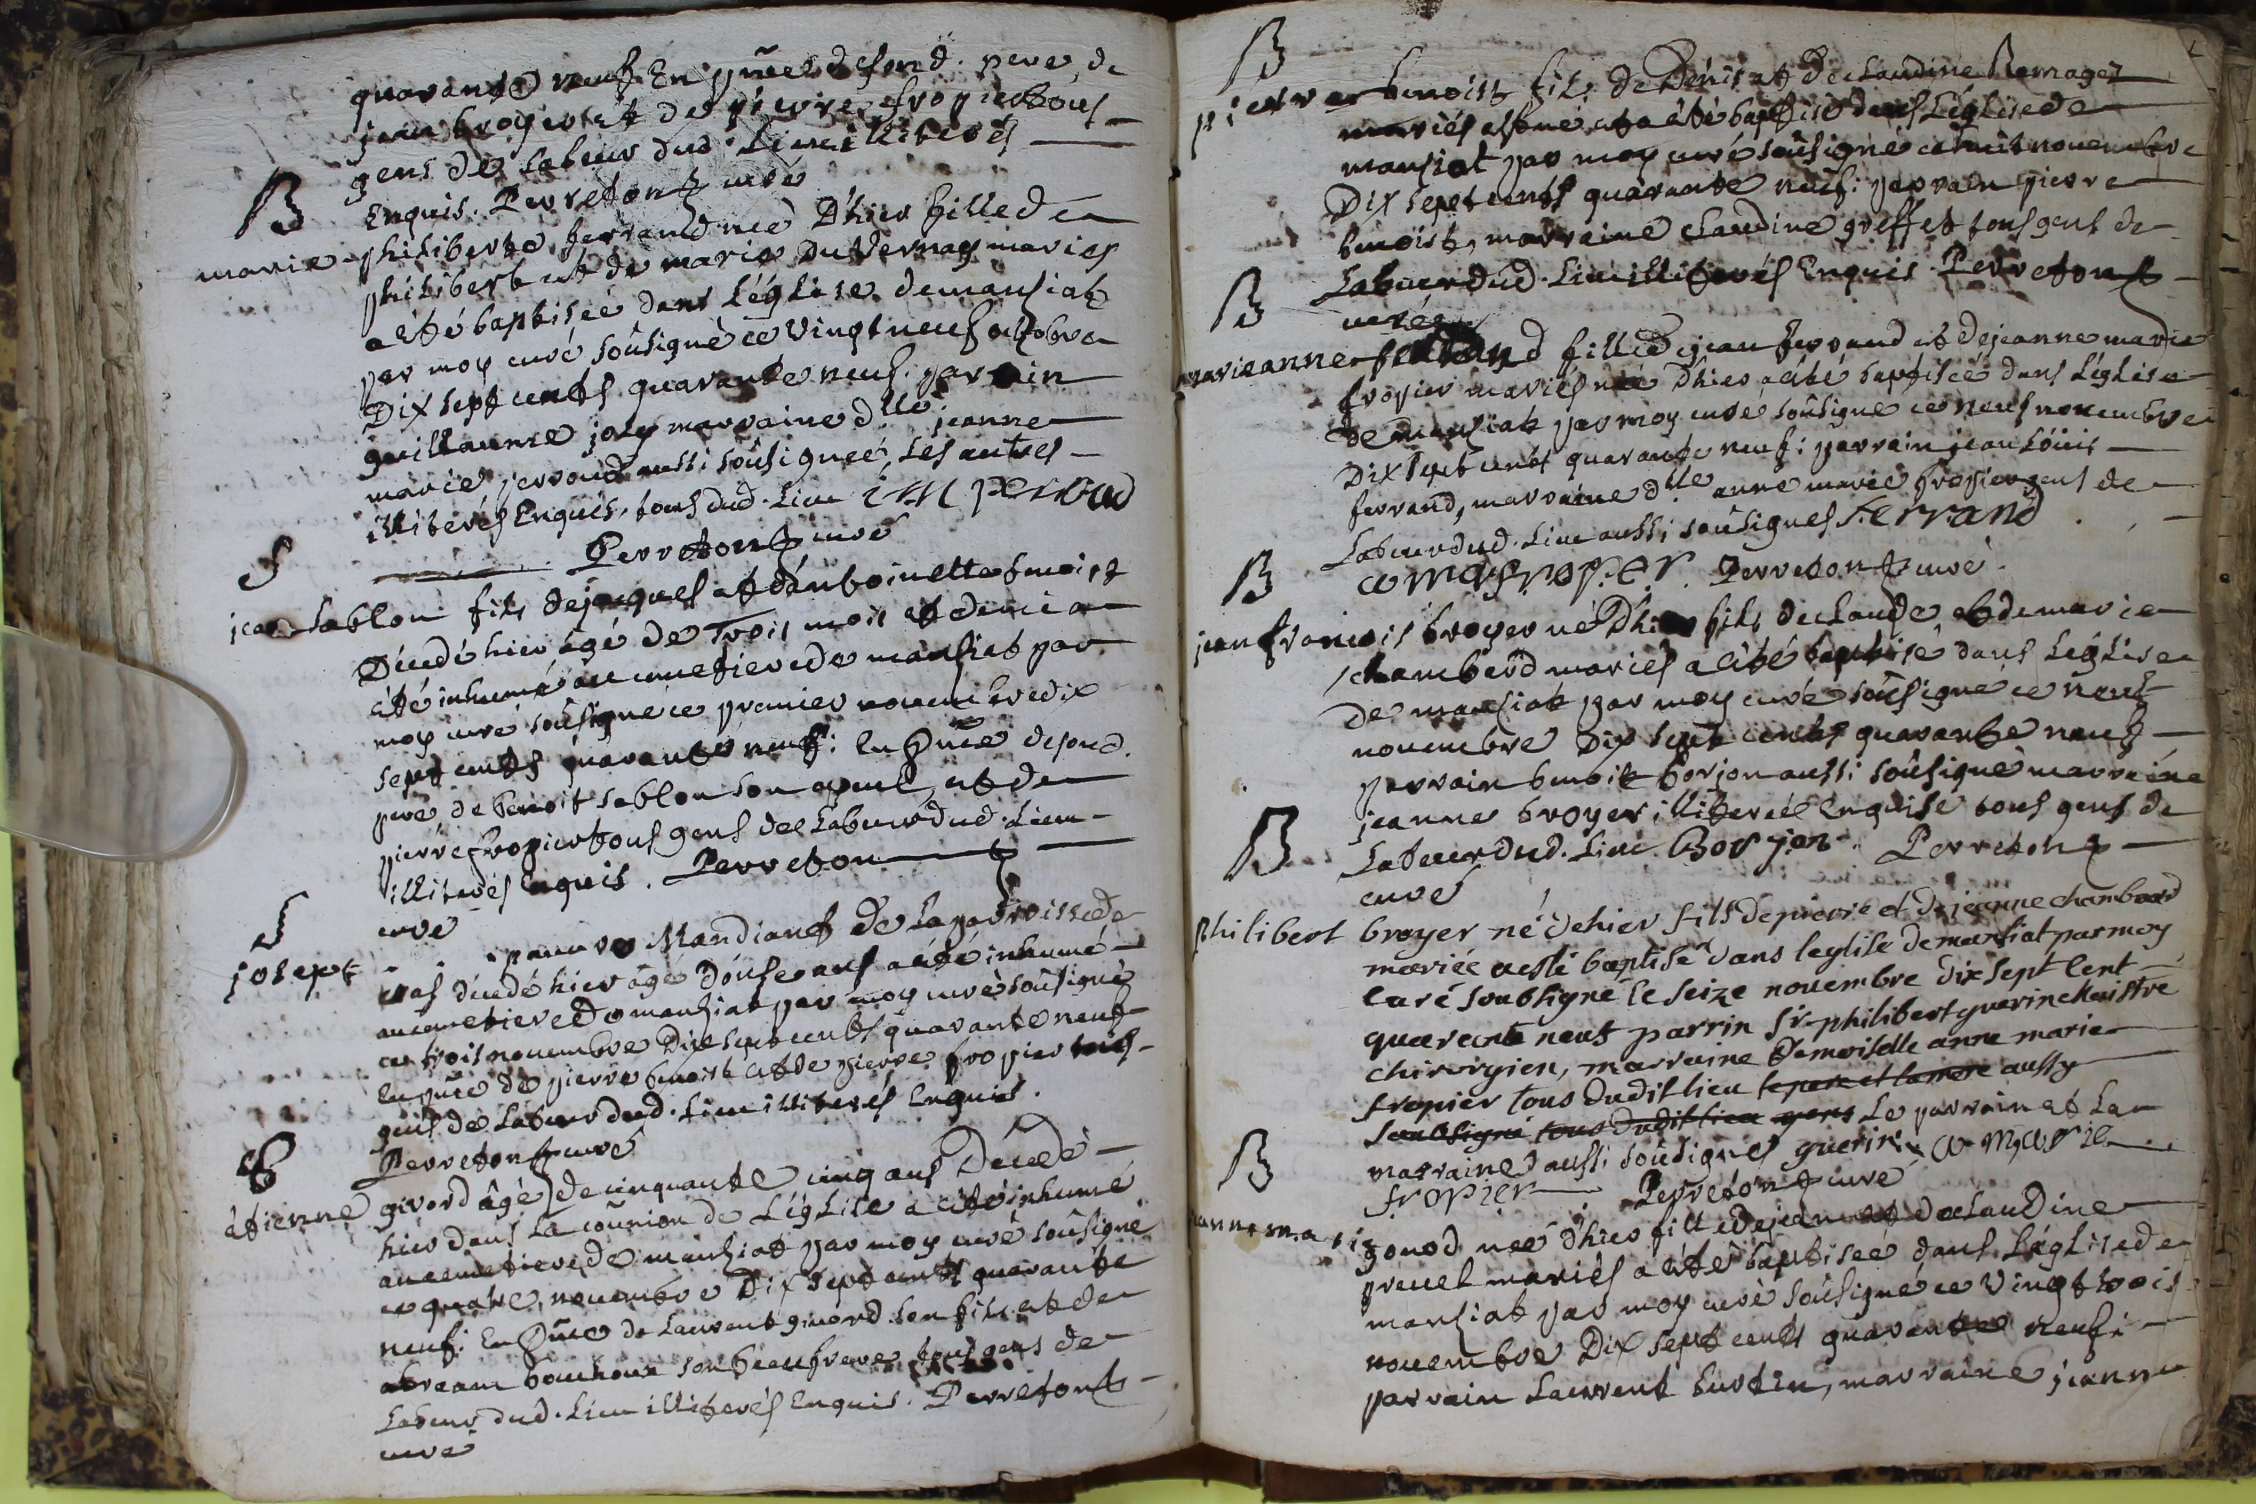 quarante neuf En pñce desond. pere de
jean broyer et de pierre fropier tous
gens de Labeur dud. Lieu illiterés
Enquis. Perreton curé
B
marie philiberte ferrand neé D'hier fille de
philibert et de marie Du Vernay mariés
a été baptiseé dans L'église de manziat
par moy curé soûsigné ce vingt neuf octobre
Dix sept cents quarante neuf. parrain
guillaume joly marraine d.lle jeanne
marie perroud aussi soûsigneé, Les autres
illiterés Enquis, tous dud. Lieu I M perroud
Perreton curé
S
jean sablon fils de jaques et d'anthoinette benoist
Décédé hier âgé de Trois mois et demi a
été inhumé au cimetiere de manziat par
moy curé soûsigné ce premier novembre dix
sept cents quarante neuf: En pñce desond.
pere de benoit sablon son ayeul, et de
pierre fropier tous gens de Labeur dud. Lieu
illiterés Enquis. Perreton
curé
S
joseph pauvre Mandiant de La parroisse de
bas décédé hier âgé d'onse ans a été inhumé
au cimetiere de manziat par moy curé soûsigné
ce trois novembre Dix sept cents quarante neuf
En pñce de pierre benoist et de pierre fropier tous
gens de Labeur dud. Lieu illiterés Enquis.
Perreton curé
étienne givord âgé de cinquante cinq ans Décédé
hier dans La coûnion de L'église a été inhumé
au cimetiere de manziat par moy curé soûsigné
ce quatre novembre Dix sept cents quarante
neuf: En pñce de Laurent givord son fils et de
abraam bouchoux son beaufrere tous gens de
Labeur dud. Lieu illiterés Enquis. Perreton
curé
B
pierre benoist fils de Denis et de claudine Ramages
mariés a été baptisé dans L'église de
manziat par moy curé soûsigné ce huit novembre
Dix sept cents quarante neuf: parrain pierre
benoist, marraine claudine greffet tous gens de
Labeur dud. Lieu illiterés Enquis. Perreton
curé
B
marieanne ferrand fille de jean ferrand et de jeanne marie
fropier mariés neé D'hier a été baptiseé dans L'église
de manziat par moy curé soûsigné ce neuf novembre
Dix sept cents quarante neuf: parrain jean Loüis
ferrand, marraine d.lle anne marie fropier gens de
Labeur dud. Lieu aussi soûsignés Ferrand
a ma fropier. Perreton curé.
B
jeanfrancois broyer né D'hier fils de claude et de marie
chamberd mariés a été baptisé dans L'église
de manziat par moy curé soûsigné ce neuf
novembre Dix sept cents quarante neuf
parrain benoit borjon aussi soûsigné marraine
jeanne broyer illitereé Enquise tous gens de
Labeur dud. Lieu. Borjon. Perreton
curé
B
philibert broyer né dehier fils de pierre et de jeanne chambard
mariée a esté baptisé dans leglise de manziat par moy
curé soubsigné le seize novembre dix sept cent
quarante neuf parrin sr. philibert guerin Maistre
chirurgien, marraine demoiselle anne marie
fropier tous dudit lieu le pere et la mere aussy
soubsigné tous dudit lieu gens Le parrain et La
marraine aussi soûsignés guerin a marie
fropier Perreton curé
B
annemarie gonod neé D'hier fille de jean et de claudine
prevel mariés a été baptiseé dans L'église de
manziat par moy curé soûsigné ce vingt trois
novembre Dix sept cents quarante neuf:
parrain Laurent burtin, marraine jeanne